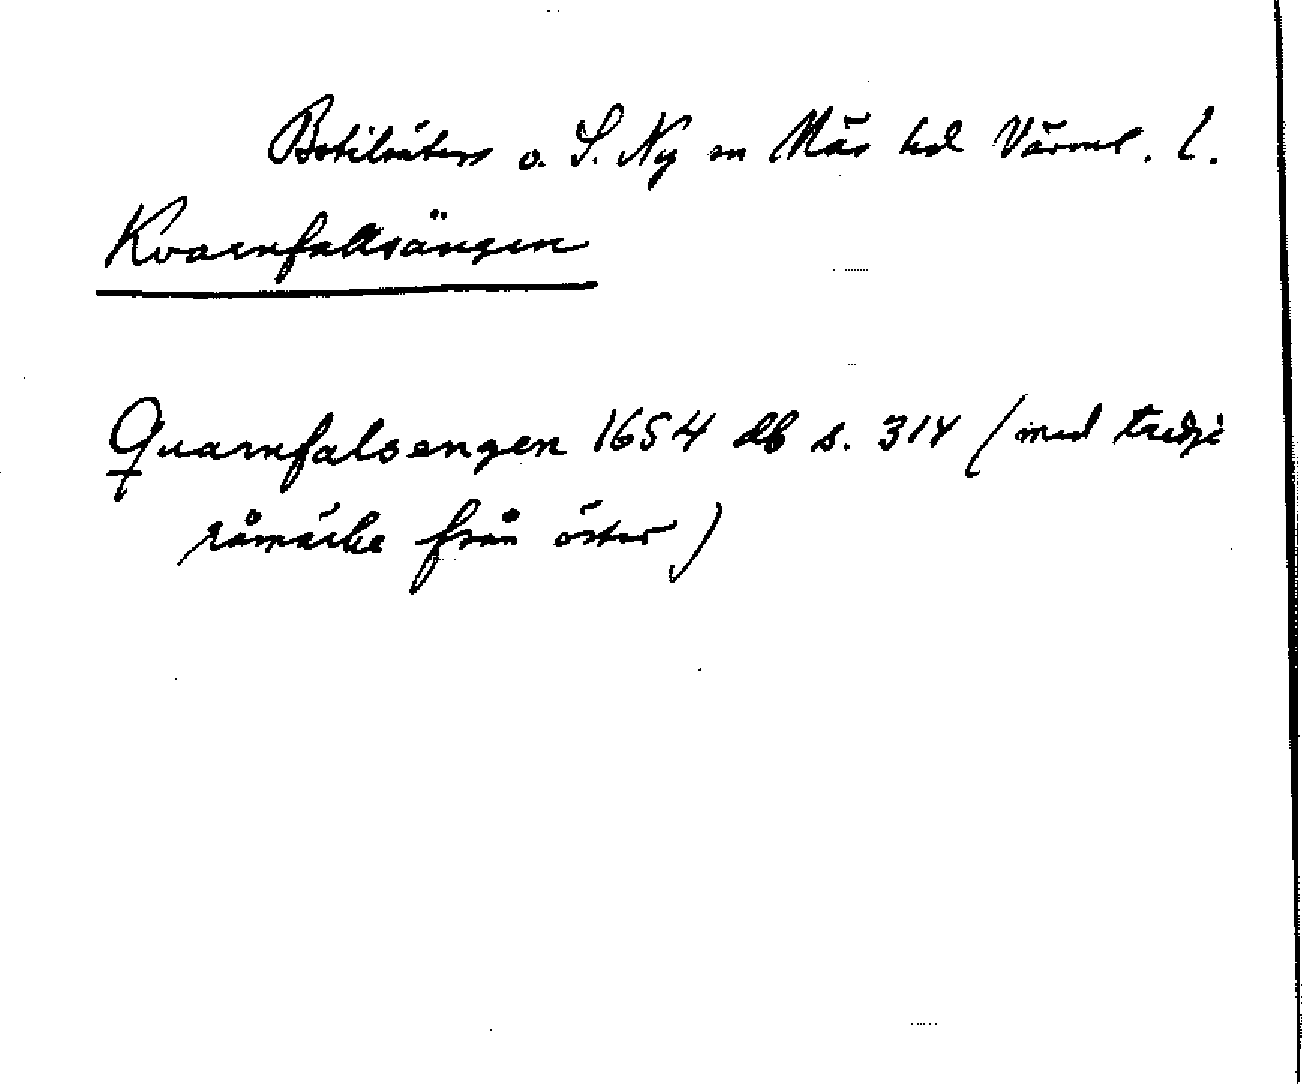 Botilsäters o. S. Ny sn Näs hd Värml. l.
Kvarnfallsängen
Quarnfalsengen 1654 db s. 314 (med tredje
råmärke från öster)